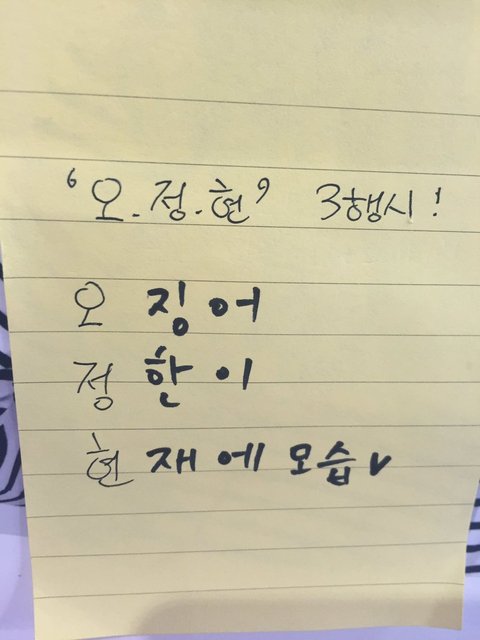 '오.정.현' 3행시!
오징어
정한이
현재에 모습v